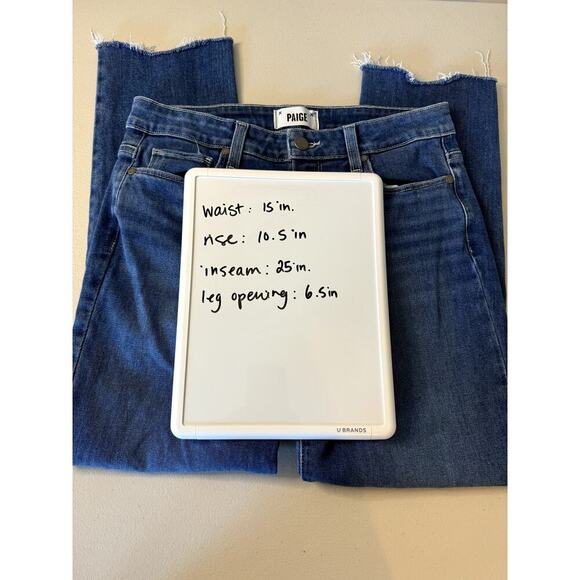 PAIGE
waist: 15 in.
rise: 10.5 in
inseam: 25 in.
leg opening: 6.5in
U BRANDS